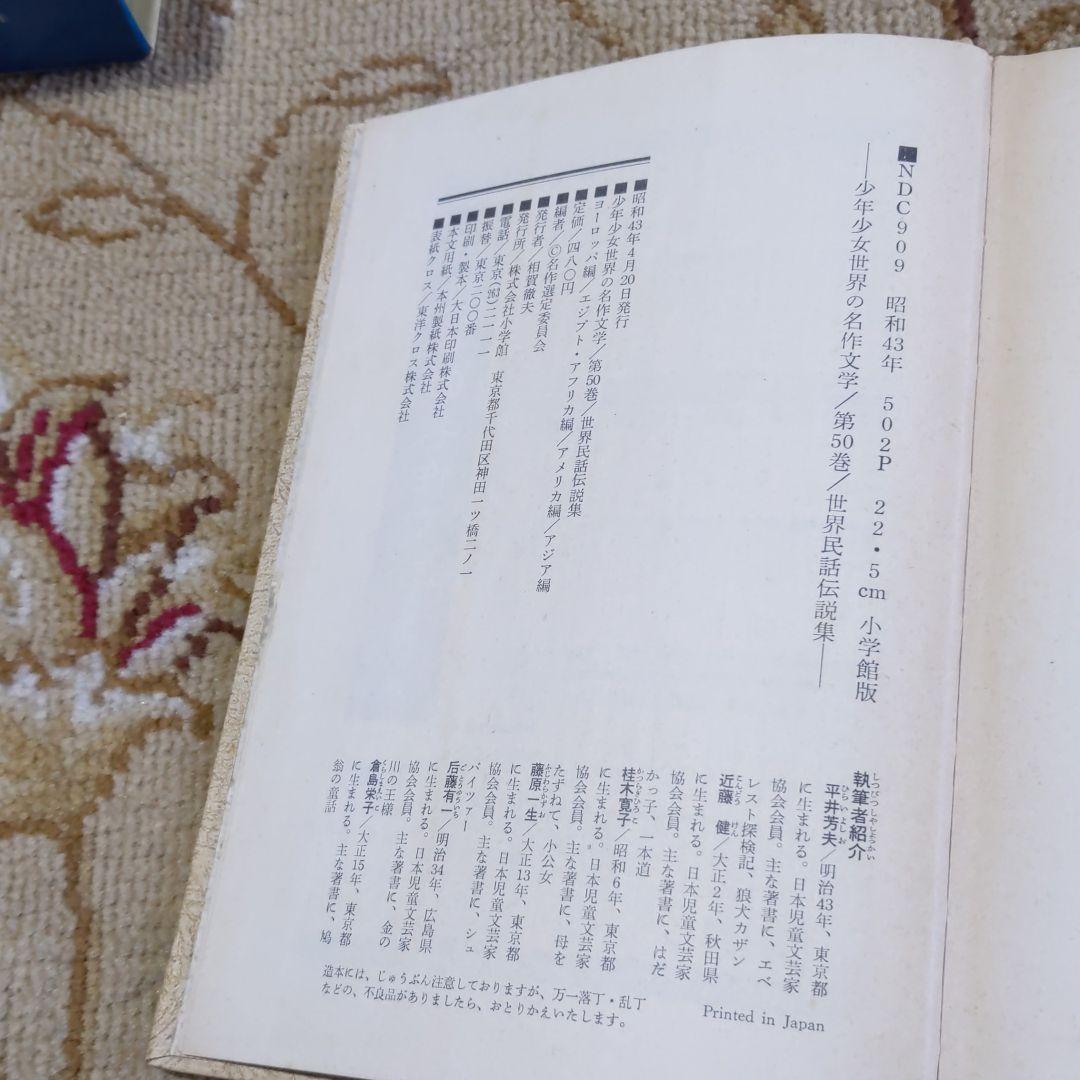 ■NDC909 昭和43年 502P 22・5cm 小学館版
――少年少女世界の名作文学/第50巻/世界民話伝説集――
■昭和43年4月20日発行
■少年少女世界の名作文学/第50巻/世界民話伝説集
■ヨーロッパ編/エジプト・アフリカ編/アメリカ編/アジア編
■定価/四八〇円
■編者/©名作選定委員会
■発行者/相賀徹夫
■発行所/株式会社小学館 東京都千代田区神田一ツ橋二ノ一
■電話/東京(263)二一一一
■振替/東京二〇〇番
■印刷・製本/大日本印刷株式会社
■本文用紙/本州製紙株式会社
■表紙クロス/東洋クロス株式会社
執筆者紹介
しっぴつしゃしょうかい
平井芳夫/明治43年、東京都
ひらいよしお
に生まれる。日本児童文芸家
協会会員。主な著書に、エベ
レスト探検記、狼犬カザン
近藤 健/大正2年、秋田県
こんどう けん
に生まれる。日本児童文芸家
協会会員。主な著書に、はだ
かっ子、一本道
桂木寛子/昭和6年、東京都
かつらぎひろこ
に生まれる。日本児童文芸家
協会会員。主な著書に、母を
たずねて、小公女
藤原一生/大正13年、東京都
ふじわらかずお
に生まれる。日本児童文芸家
協会会員。主な著書に、シュ
バイツァー
后藤有一/明治34年、広島県
ごとうゆういち
に生まれる。日本児童文芸家
協会会員。主な著書に、金の
川の王様
倉島栄子/大正15年、東京都
くらしまえいこ
に生まれる。主な著書に、鳩
翁の童話
造本には、じゅうぶん注意しておりますが、万一落丁・乱丁
などの、不良品がありましたら、おとりかえいたします。
Printed in Japan